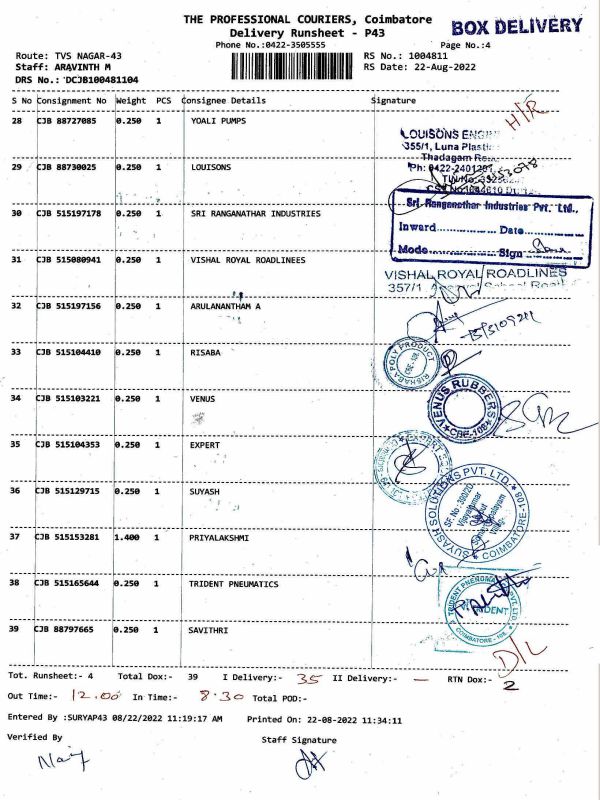 THE PROFESSIONAL COURIERS, Coimbatore
Delivery Runsheet - P43
BOX DELIVERY
Phone No.:0422-3505555
Page No.:4
Route: TVS NAGAR-43
RS No.: 1004811
Staff: ARAVINTH M
RS Date: 22-Aug-2022
DRS No.: DCJB100481104
S No Consignment No Weight PCS Consignee Details Signature
28 CJB 88727085 0.250 1 YOALI PUMPS
LOUISONS
355/1, Luna
Thadagam
29 CJB 88730025 0.250 1 LOUISONS
30 CJB 515197178 0.250 1 SRI RANGANATHAR INDUSTRIES
Sri. Ranganathar Industries Pvt. Ltd.,
Inward Date
Mode Sign
31 CJB 515080941 0.250 1 VISHAL ROYAL ROADLINEES
VISHAL ROYAL ROADLINES
357/1
32 CJB 515197156 0.250 1 ARULANANTHAM A
33 CJB 515104410 0.250 1 RISABA
34 CJB 515103221 0.250 1 VENUS
VENUS RUBBERS
35 CJB 515104353 0.250 1 EXPERT
36 CJB 515129715 0.250 1 SUYASH
SUYASH SOLUTIONS PVT. LTD.
COIMBATORE-108
37 CJB 515153281 1.400 1 PRIYALAKSHMI
38 CJB 515165644 0.250 1 TRIDENT PNEUMATICS
TRIDENT
39 CJB 88797665 0.250 1 SAVITHRI
D/L
Tot. Runsheet:- 4 Total Dox:- 39 I Delivery:- 35 II Delivery:- — RTN Dox:- 2
Out Time:- 12.00 In Time:- 8.30 Total POD:-
Entered By :SURYAP43 08/22/2022 11:19:17 AM Printed On: 22-08-2022 11:34:11
Verified By Staff Signature